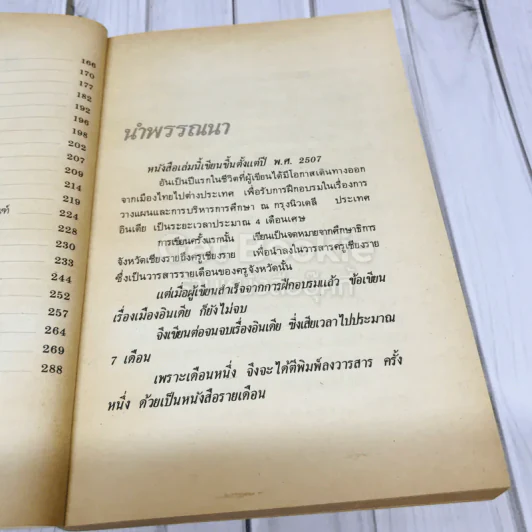 166
170
177
182
192
196
198
202
207
209
214
219
224
228
230
233
244
252
257
264
269
288
นำพรรณนา
หนังสือเล่มนี้เขียนขึ้นตั้งแต่ปี พ.ศ. 2507
อันเป็นปีแรกในชีวิตที่ผู้เขียนได้มีโอกาสเดินทางออก
จากเมืองไทยไปต่างประเทศ เพื่อรับการฝึกอบรมในเรื่องการ
วางแผนและการบริหารการศึกษา ณ กรุงนิวเดลี ประเทศ
อินเดีย เป็นระยะเวลาประมาณ 4 เดือนเศษ
การเขียนครั้งแรกนั้น เขียนเป็นจดหมายจากศึกษาธิการ
จังหวัดเชียงรายถึงครูเชียงราย เพื่อนำลงในวารสารครูเชียงราย
ซึ่งเป็นวารสารรายเดือนของครูจังหวัดนั้น
แต่เมื่อผู้เขียนสำเร็จจากการฝึกอบรมแล้ว ข้อเขียน
เรื่องเมืองอินเดีย ก็ยังไม่จบ
จึงเขียนต่อจนจบเรื่องอินเดีย ซึ่งเสียเวลาไปประมาณ
7 เดือน
เพราะเดือนหนึ่ง จึงจะได้ตีพิมพ์ลงวารสาร ครั้ง
หนึ่ง ด้วยเป็นหนังสือรายเดือน